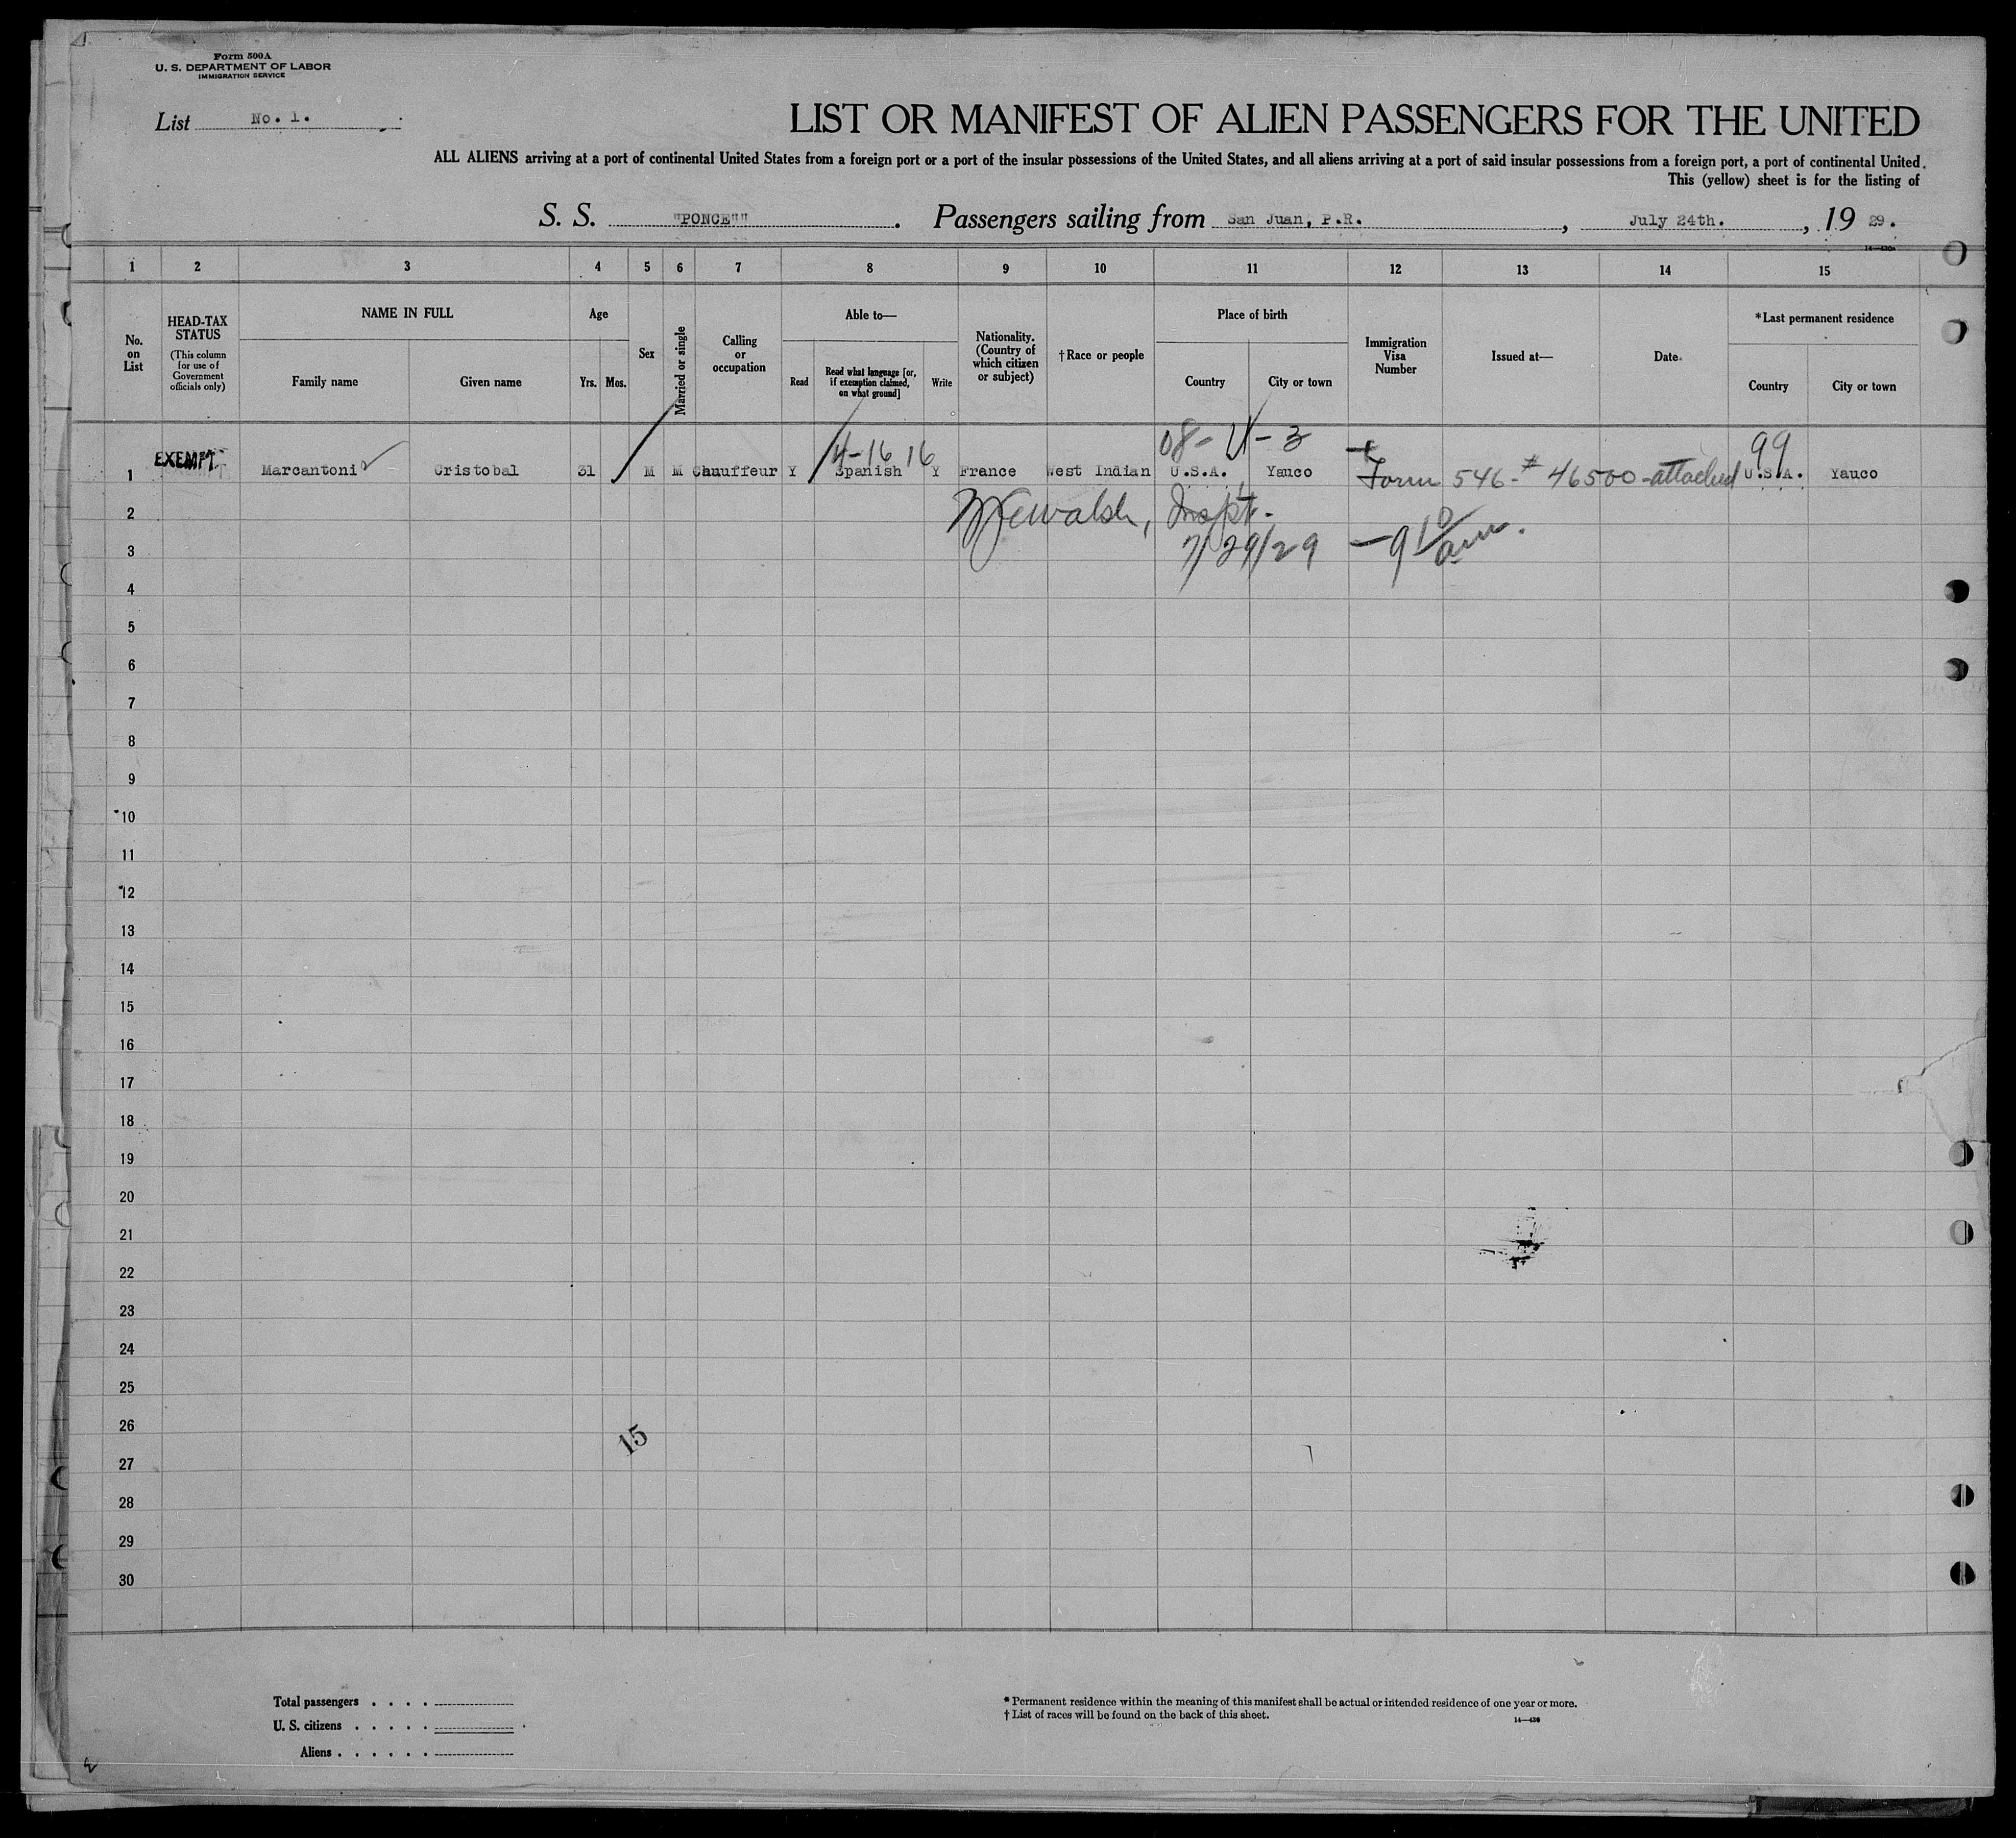 Form 500A
U. S. DEPARTMENT OF LABOR
IMMIGRATION SERVICE
List No. 1.
LIST OR MANIFEST OF ALIEN PASSENGERS FOR THE UNITED
ALL ALIENS arriving at a port of continental United States from a foreign port or a port of the insular possessions of the United States, and all aliens arriving at a port of said insular possessions from a foreign port, a port of continental United
This (yellow) sheet is for the listing of
S. S. "PONCE"" . Passengers sailing from San Juan, P.R. , July 24th. , 19 29.
14—430
1 2 3 4 5 6 7 8 9 10 11 12 13 14 15
No. on List
HEAD-TAX STATUS
(This column for use of Government officials only)
NAME IN FULL
Family name
Given name
Age
Yrs. Mos.
Sex
Married or single
Calling or occupation
Able to—
Read
Read what language [or, if exemption claimed, on what ground]
Write
Nationality. (Country of which citizen or subject)
†Race or people
Place of birth
Country
City or town
Immigration Visa Number
Issued at—
Date
*Last permanent residence
Country
City or town
4-16 16 99
1 EXEMPT Marcantoni Cristobal 31 M M Chauffeur Y Spanish Y France West Indian U.S.A. Yauco Form 546-# 46500-attached U.S.A. Yauco
2 Inspt.
3 7/29/29 —9 10 am.
4
5
6
7
8
9
10
11
12
13
14
15
16
17
18
19
20
21
22
23
24
25
26
15
27
28
29
30
Total passengers . . . .
U. S. citizens . . . . .
Aliens . . . . . .
* Permanent residence within the meaning of this manifest shall be actual or intended residence of one year or more.
† List of races will be found on the back of this sheet.
14—430